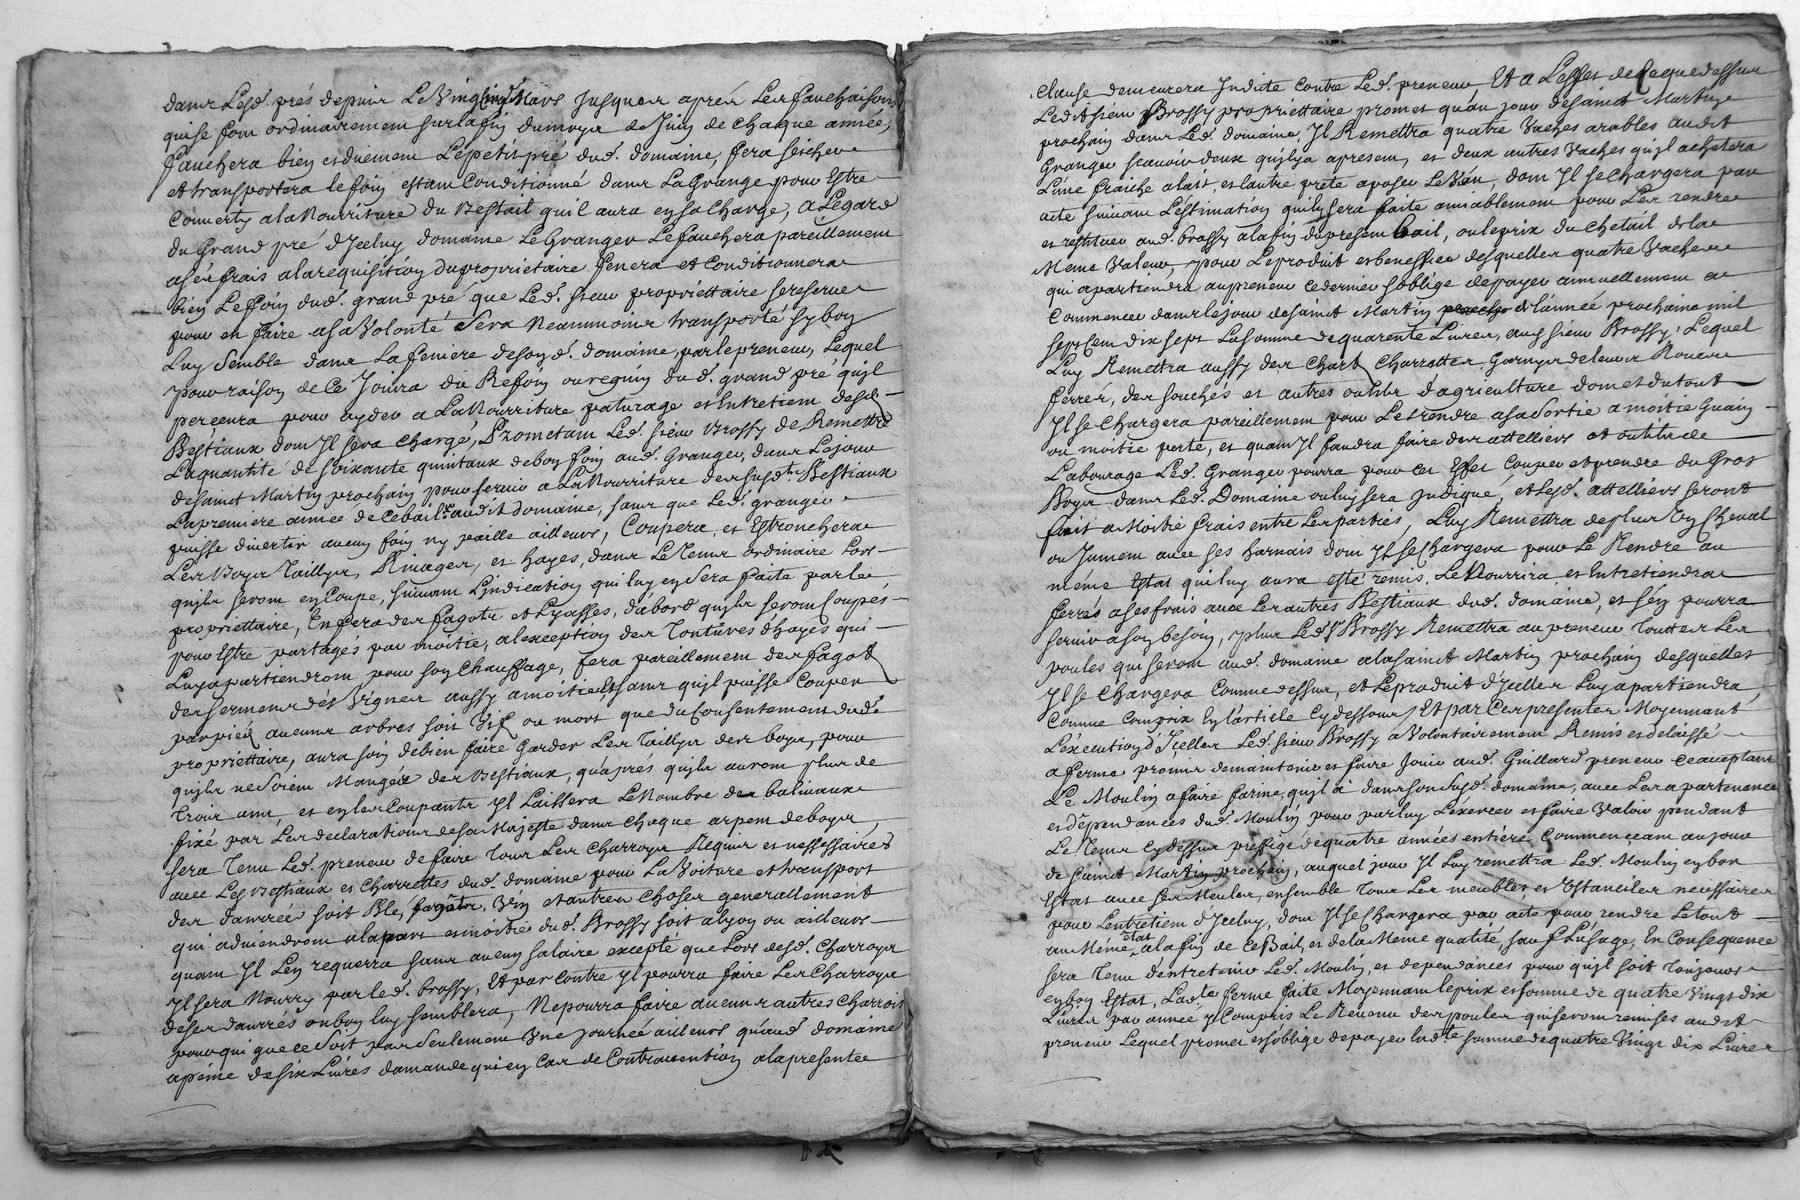 dans Lesd. prés depuis Le Vingcinq Mars Jusques aprés Les fauchaisons
quise font ordinairement surlafin dumoys de Juin de chaque année,
fauchera bien et duement Lepetit pré dud. domaine, fera seicher
et transportera le foin estant Conditionné dans La Grange pour Estre
Converty ala Nourriture du Bestail quil aura en sa Charge, a Legard
du Grand pré d'Iceluy domaine Le Granger Le fauchera pareillement
a ses frais ala requisition du proprietaire fenera et Conditionnera
bien Le foin dud. grand pré que Led. sieur propriettaire se reserve
pour en faire asa Volonté Sera Neanmoins transporté sy bon
Luy Semble dans La feniere de son d. domaine, par le preneur, Lequel
pour raison de Ce Jouira du Refoin ou regain du d. grand pré quil
percevra pour ayder a La Nourriture paturage et Entretient desd.
Bestiaux dont Il sera chargé, Prometant Led. sieur Brossy de Remettre
La quantité de soixante quintaux de bon foin aud. Granger, dans Le jour
de Sainct Martin prochain pour servir a La Nourriture des susd. Bestiaux
La premiere année de ce bail audit domaine, sans que Led. granger
puisse divertir aucun foin ny paille ailleurs, Coupera et Estronchera
Les Boys Taillys, Rivages, et hayes, dans Le Tems ordinaire Lors
quils seront en Coupe, suivant L'indication qui luy en Sera faite par le
propriettaire, En fera des fagots et Lyasses, d'abord quils seront Coupés
pour Estre partagés par moitié, a l'exception des Tontures d'hayes qui
Luy apartiendront pour son Chauffage, fera pareillement des fagots
des sermens des Vignes aussy a moitié Et sans quil puisse Couper
par pied aucuns arbres soit Vif ou mort que du Consentement dud.
propriettaire, aura soin de bien faire Garder Les Taillys des boys, pour
quils ne Soient Mangés des Bestiaux, qu'aprés quils auront plus de
Trois ans, et en les Coupants Il Laissera Le Nombre de balivaux
fixé par Les declarations de sa Majesté dans chaque arpent de boys,
sera Tenu Led. preneur de faire Tous Les Charroys Requis et nessessaires
avec Les Bestiaux et Charrettes dud. domaine pour La Voiture et transport
des danrrées soit Ble, fagots, Vin et autres Choses generallement
qui adviendront ala part et moitié dud. Brossy soit a Lyon ou ailleurs
quant Il Len requerra sans aucun salaire excepté que Lors desd. Charroys
Il sera Nourry par led. Brossy, Et par contre Il pourra faire Les Charroys
de ses danrrés ou bon luy semblera, Ne pourra faire aucuns autres Charrois
pour qui que ce Soit pas Seulement Une journée ailleurs qu'aud. domaine
a peine de six Livres damande qui en Cas de Contravention a la presente
clause demeurera Indite Contre Led. preneur, Et a Leffet de Ce que dessus
Ledit sieur Brossy propriettaire promet qu'au jour de sainct Martin
prochain dans Led. domaine, Il Remettra quatre Vaches arables audit
Granger scavoir deux quil y a a present, et deux autres Vaches quil achetera
Lune fraiche a lait, et l'autre prete a poser Le Veau, dont Il se Chargera par
acte suivant L'estimation quil en sera faite amiablement pour Les rendre
et restituer aud. Brossy a la fin du present bail, ou le prix du chetail de la
Meme Valeur, pour Le produit et benefice desquelles quatre Vaches
qui apartiendra au preneur ce dernier s'oblige de payer annuellement a
Commencer dans le jour de Sainct Martin de l'année prochaine mil
sept Cent dix sept La somme de quarante Livres, aud. sieur Brossy, Lequel
Luy Remettra aussy des Chart Charrottes Garnys de leurs Roues
ferrés, des souchés et autres outils d'agriculture dont et du tout
Il se Chargera pareillement pour Les rendre a sa Sortie a moitié Guain
ou moitié perte, et quant Il faudra faire des attelliers et outils de
Labourage Led. Granger pourra pour cet Effet Couper et prendre du Gros
Boys dans Led. Domaine ou luy sera Indiqué, et Lesd. attelliers seront
fait a Moitié frais entre Les parties, Luy Remettra de plus Un Cheval
ou Jument avec ses harnais dont Il se Chargera pour Le Rendre au
même Estat qui luy aura esté remis, Le Nourrira, et Entretiendra
ferrés a ses frais avec Les autres Bestiaux dud. domaine, et s'en pourra
servir a son besoin, plus Led. Sr Brossy Remettra au preneur Touttes Les
poules qui seront aud. domaine a la sainct Martin prochain desquelles
Il se Chargera Comme dessus, et Le produit d'Icelles Luy apartiendra,
Comme compris En l'article Cy dessous, Et par Ces presentes Moyennant
L'execution d'Icelles Led. sieur Brossy a Volontairement Remis et delaissé
a ferme promis de maintenir et faire Jouir aud. Guillard preneur Ce acceptant
Le Moulin a faire farine quil a dans son Susd. domaine, avec Les apartenances
et dependances dud. Moulin pour par luy L'exercer et faire Valoir pendant
Le Tems Cy dessus prefigé de quatre années entieres Commenceant au jour
de Sainct Martin prochain, auquel jour Il Luy remettra Led. Moulin en bon
Estat avec Ses Meules, ensemble Tous Les meubles, et Ustanciles necessaires
pour Lentretien d'Iceluy, dont Il se Chargera par acte pour rendre Le tout
au Même etat a la fin de Ce Bail, et de la Meme qualité, sauf L'usage, En Consequence
sera Tenu d'entretenir Led. Moulin, et dependances pour quil soit Toujours
en bon Estat, Lad.te ferme faite Moyennant le prix et somme de quatre Vingt dix
Livres par année y Compris Le Revenu des poules qui seront remises audit
preneur Lequel promet et s'oblige de payer lad.te somme de quatre Vingt dix Livres